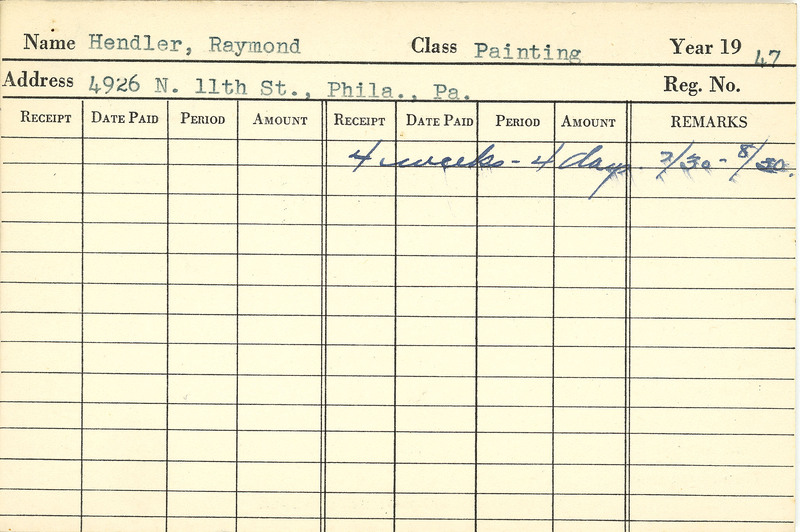 Name Hendler, Raymond Class Painting Year 19 47
Address 4926 N. 11th St., Phila., Pa. Reg. No.
RECEIPT DATE PAID PERIOD AMOUNT RECEIPT DATE PAID PERIOD AMOUNT REMARKS
4 weeks - 4 days. 7/30 - 8/30.